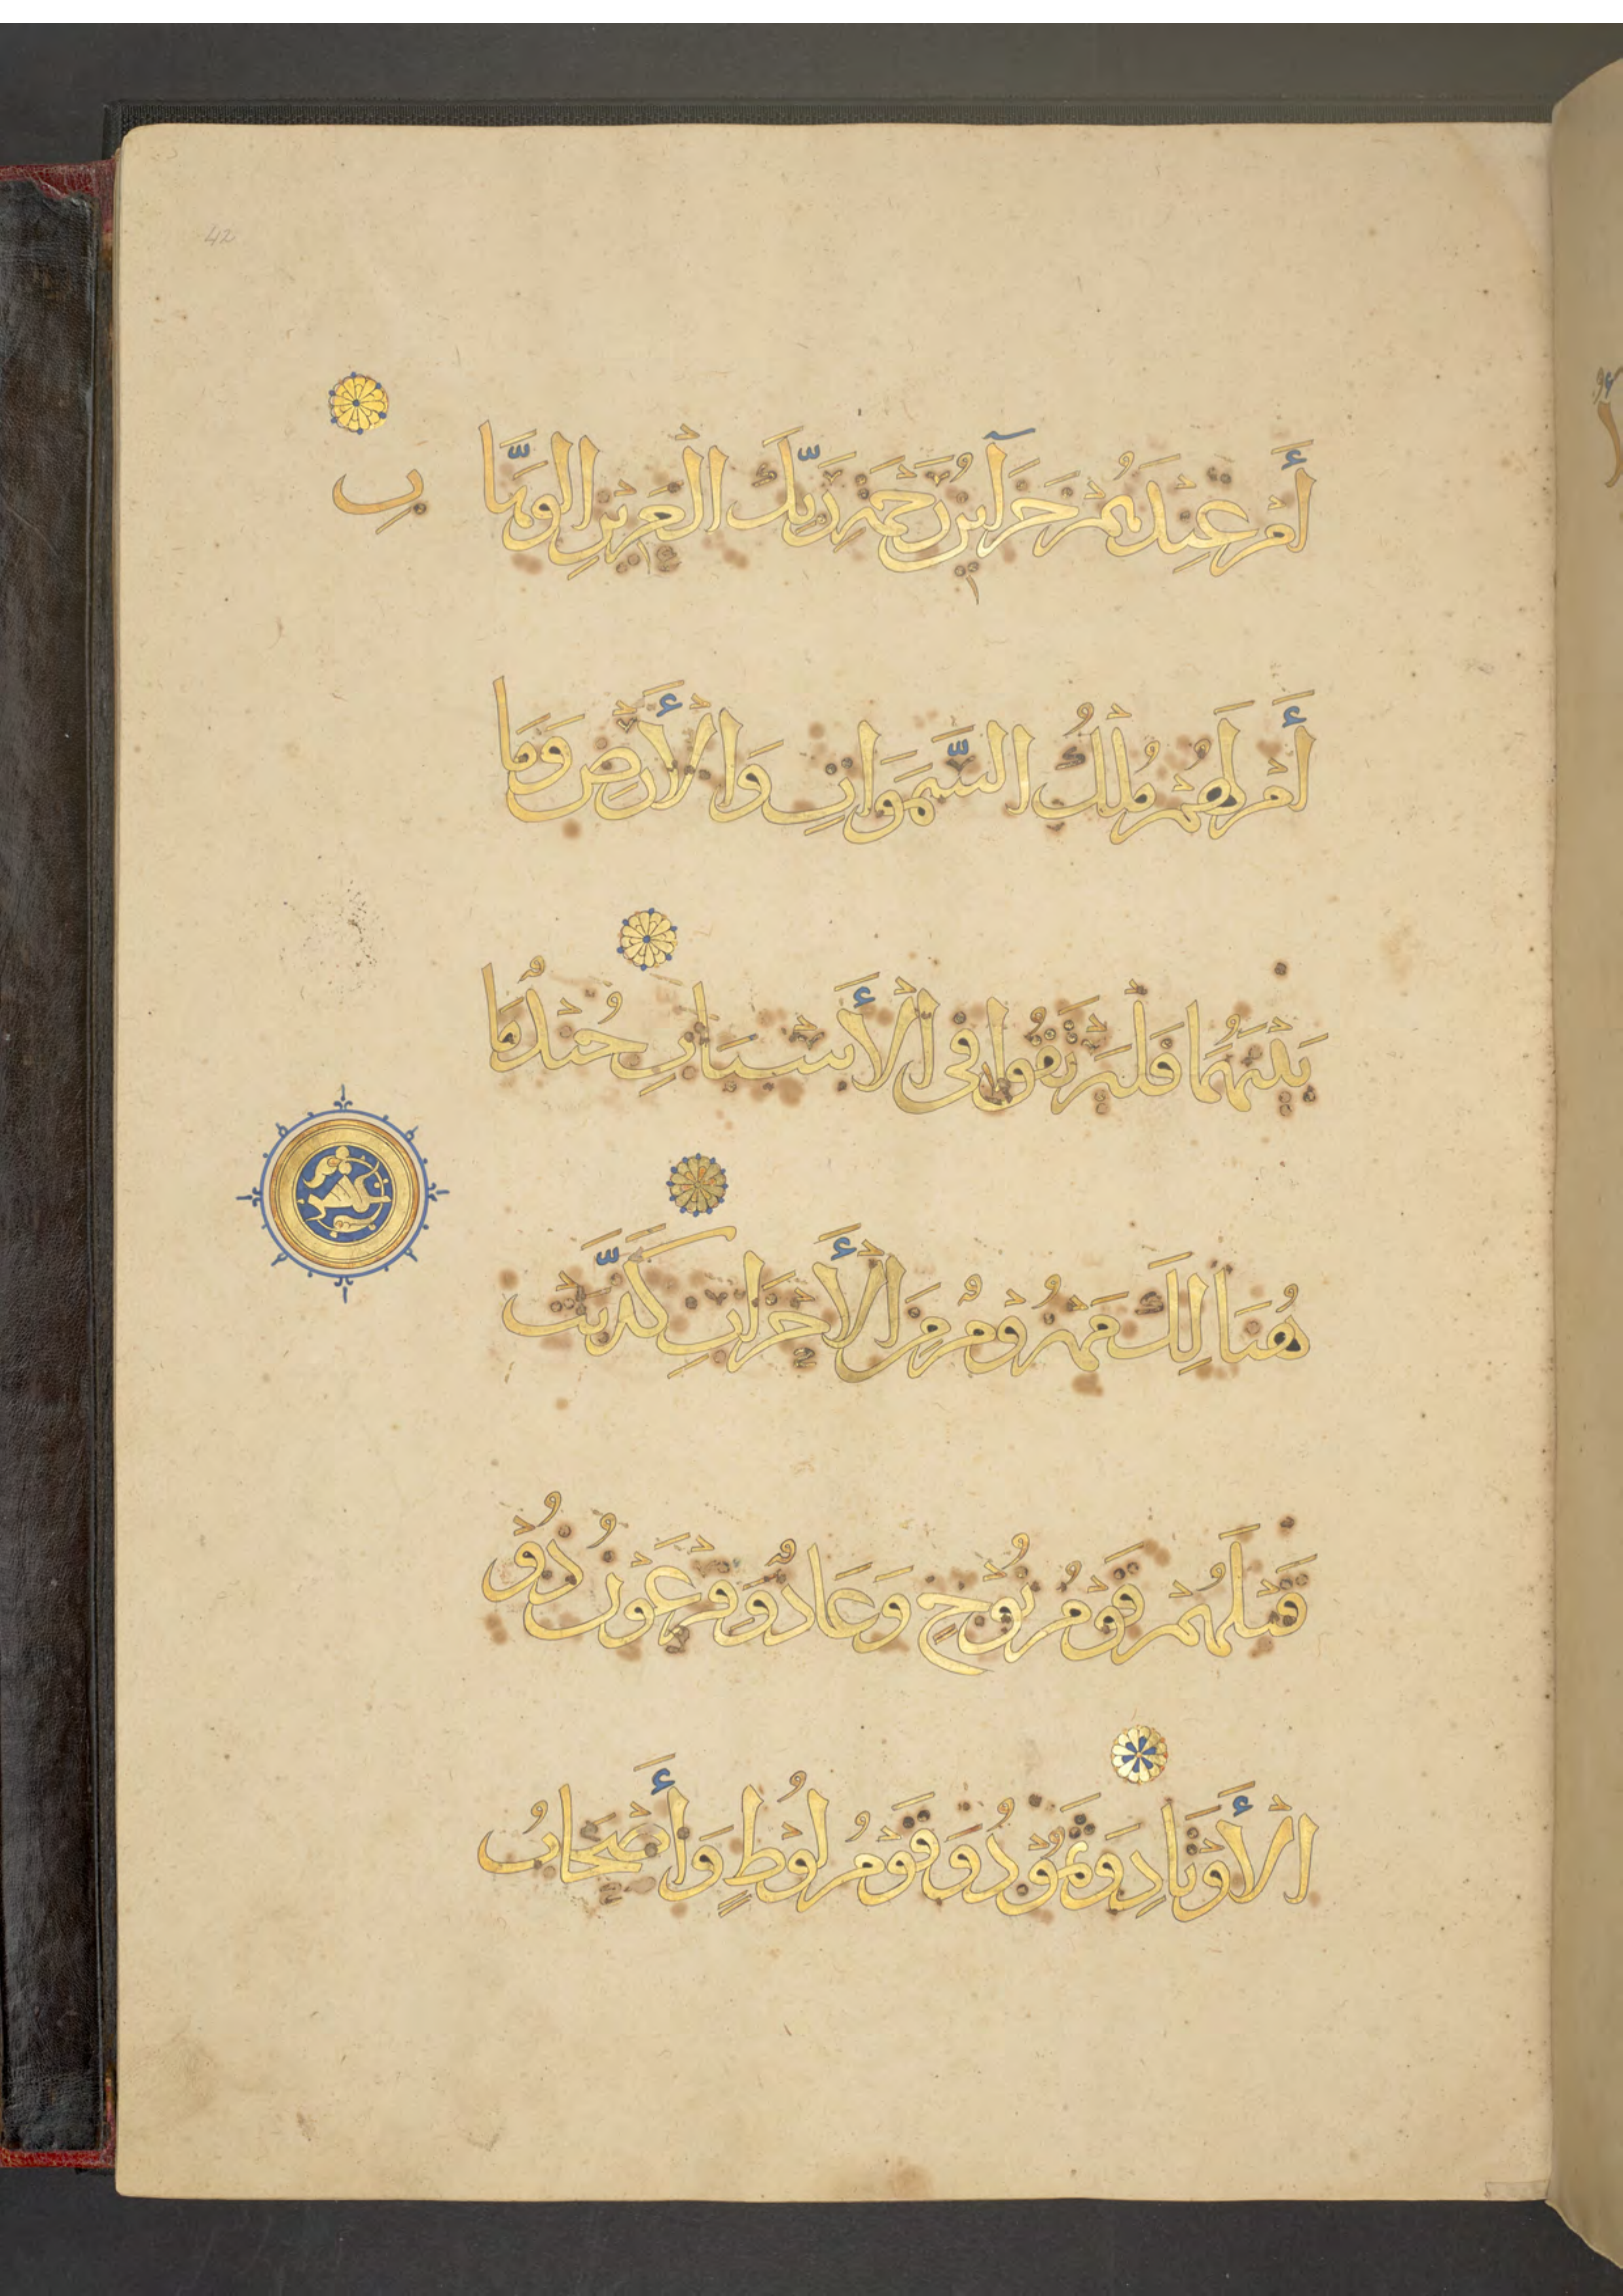 42
أَمْ عِنْدَهُمْ خَزَآئِنُ رَحْمَةِ رَبِّكَ الْعَزِيْزِ الوَهَّا
بِ
أَمْ لَهُمْ مُلْكُ السَّمَوَاتِ وَالْأَرْضِ وَمَا
بَيْنَهُمَا فَلْيَرْتَقُوا فِي الْأَسْبَابِ جُنْدٌ مَا
هُنَالِكَ مَهْزُوْمٌ مِنَ الْأَحْزَابِ كَذَّبَتْ
قَبْلَهُمْ قَوْمُ نُوْحٍ وَعَادٌ وَفِرْعَوْنُ ذُوْ
الْأَوْتَادِ وَثَمُوْدُ وَقَوْمُ لُوْطٍ وَأَصْحَابُ